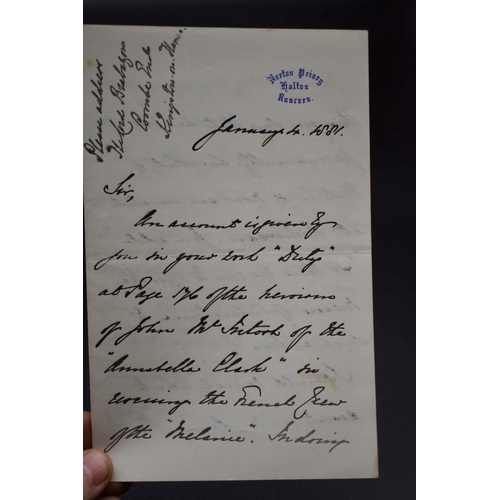 Home address
Reginald Brabazon
Coombe End
Kingston on Thames
Norton Priory
Halton
Runcorn.
January 4. 1881.
Sir,
An account is given by
you in your work "Duty"
at Page 176 of the heroism
of John McIntosh of the
"Annabella Clark" in
rescuing the French Crew
of the "Melanie". In doing